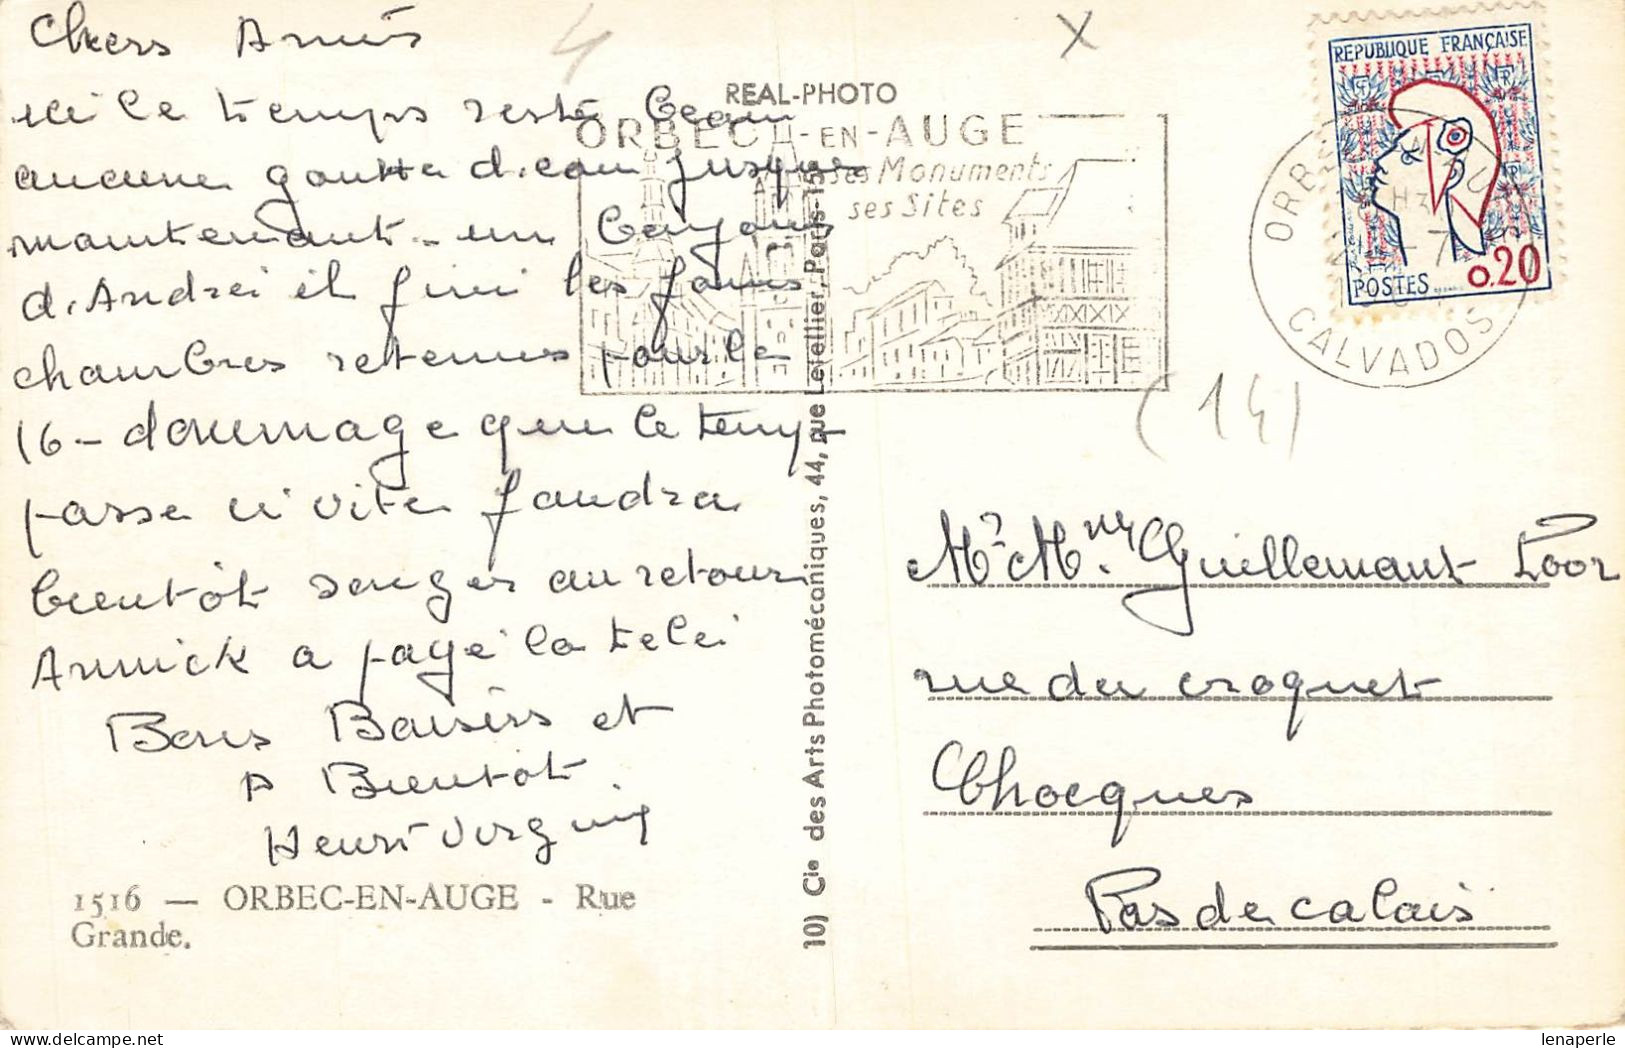 Chers Amis
ici le temps reste beau
aucune goutte d'eau jusque
maintenant - un
d'Andréi et fini les
chambres retenus pour le
16 - doummage que le temps
passe si vite faudra
bientôt songer au retour
Annick a payé la télei
Bons Baisers et
A Bientôt
Henri Virginie
1516 — ORBEC-EN-AUGE - Rue
Grande.
4
X
REAL-PHOTO
ORBEC-EN-AUGE
ses Monuments
ses Sites
10) Cie des Arts Photomécaniques, 44, rue Letellier, Paris-15e
REPUBLIQUE FRANÇAISE
POSTES 0.20
ORBEC
CALVADOS
(14)
Mr. Mme Guillemant Loor
rue du croquet
Chocques
Pas de calais
lenaperle